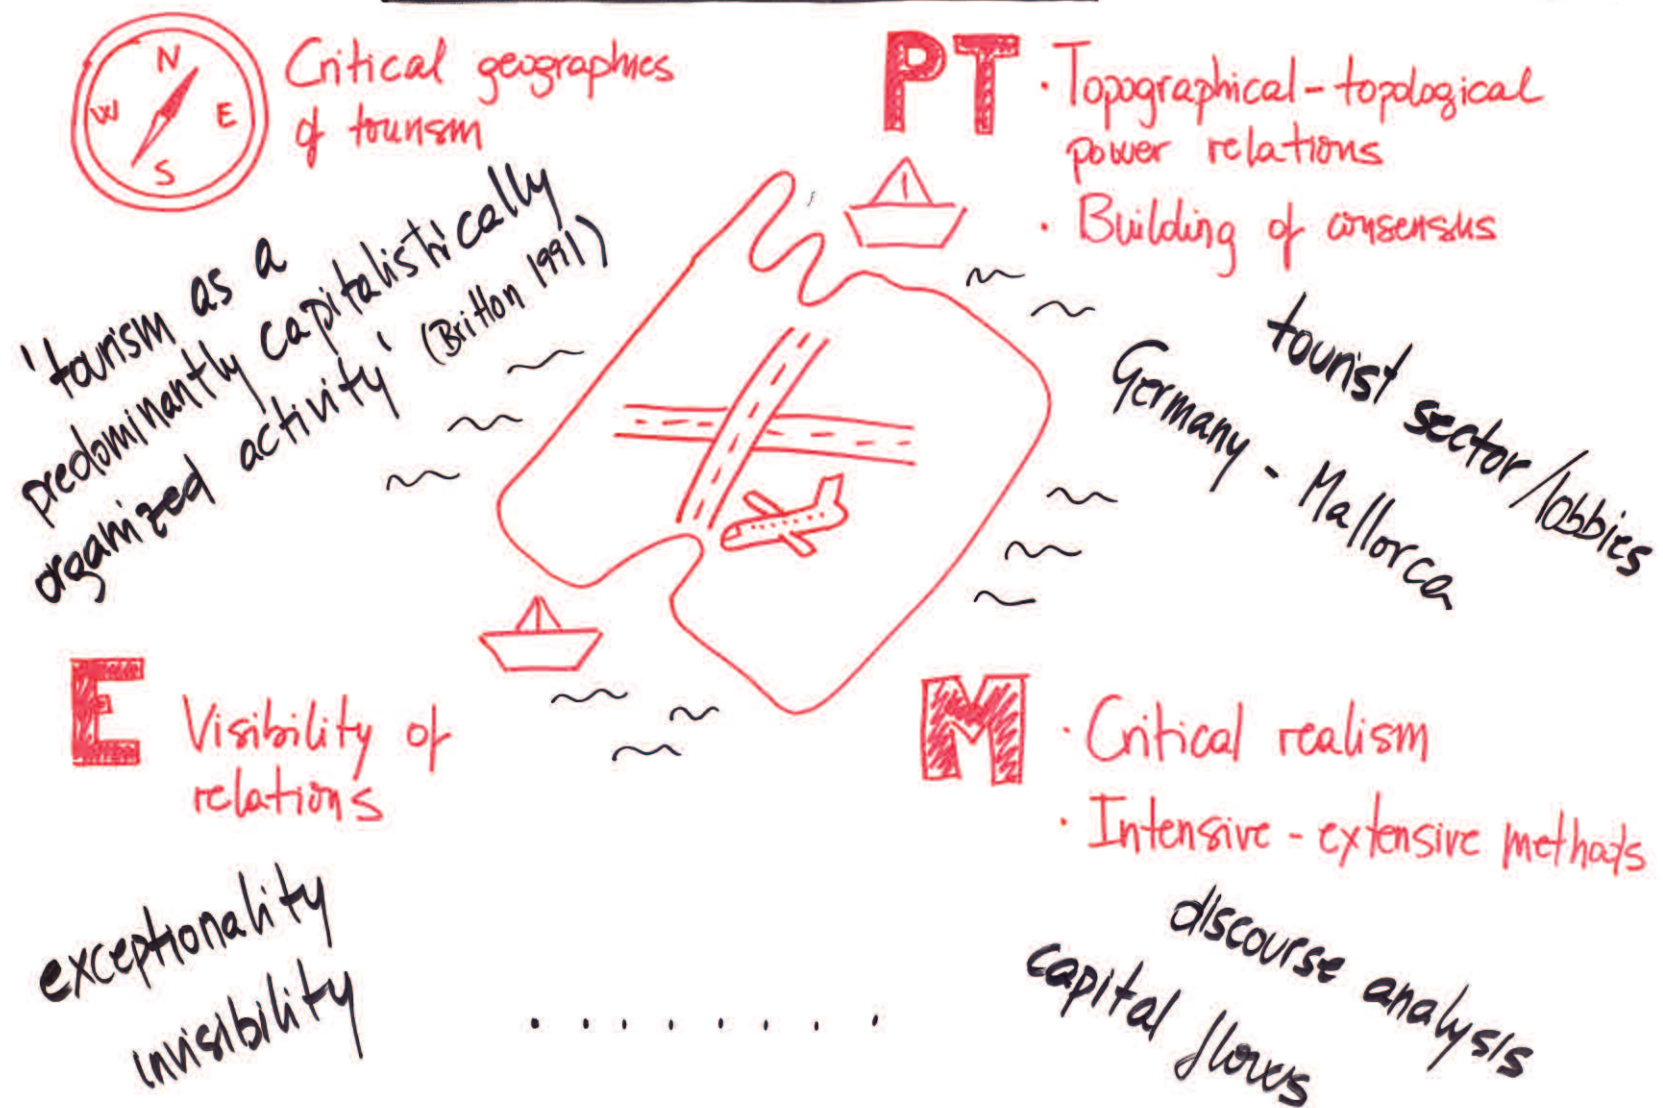 N
W
E
S
Critical geographies
of tourism
'tourism as a
predominantly capitalistically
organized activity' (Britton 1991)
PT
· Topographical-topological
power relations
· Building of consensus
tourist sector/lobbies
Germany - Mallorca
E
Visibility of
relations
exceptionality
invisibility
M
· Critical realism
· Intensive - extensive methods
discourse analysis
capital flows